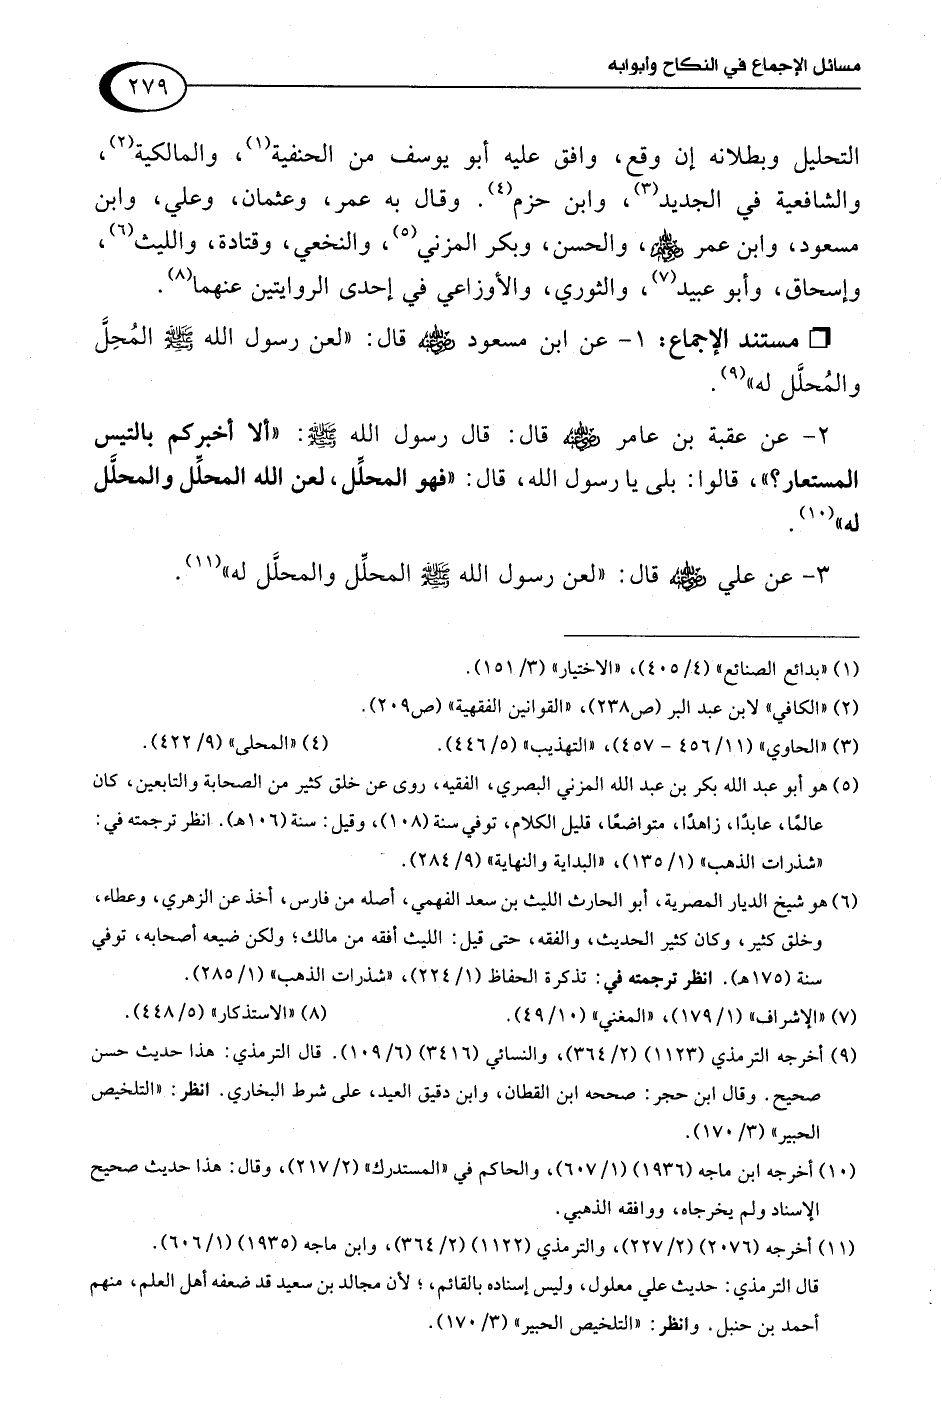 مسائل الإجماع في النكاح وأبوابه
٢٧٩
التحليل وبطلانه إن وقع، وافق عليه أبو يوسف من الحنفية(١)، والمالكية(٢)،
والشافعية في الجديد(٣)، وابن حزم(٤). وقال به عمر، وعثمان، وعلي، وابن
مسعود، وابن عمر رضي الله عنهم، والحسن، وبكر المزني(٥)، والنخعي، وقتادة، والليث(٦)،
وإسحاق، وأبو عبيد(٧)، والثوري، والأوزاعي في إحدى الروايتين عنهما(٨).
❒ مستند الإجماع: ١- عن ابن مسعود رضي الله عنه قال: «لعن رسول الله ﷺ المُحِلَّ
والمُحلَّل له»(٩).
٢- عن عقبة بن عامر رضي الله عنه قال: قال رسول الله ﷺ: «ألا أخبركم بالتيس
المستعار؟»، قالوا: بلى يا رسول الله، قال: «فهو المحلِّل، لعن الله المحلِّل والمحلَّل
له»(١٠).
٣- عن علي رضي الله عنه قال: «لعن رسول الله ﷺ المحلِّل والمحلَّل له»(١١).
(١) «بدائع الصنائع» (٤/٤٠٥)، «الاختيار» (٣/١٥١).
(٢) «الكافي» لابن عبد البر (ص٢٣٨)، «القوانين الفقهية» (ص٢٠٩).
(٣) «الحاوي» (١١/٤٥٦ - ٤٥٧)، «التهذيب» (٥/٤٤٦). (٤) «المحلى» (٩/٤٢٢).
(٥) هو أبو عبد الله بكر بن عبد الله المزني البصري، الفقيه، روى عن خلق كثير من الصحابة والتابعين، كان
عالمًا، عابدًا، زاهدًا، متواضعًا، قليل الكلام، توفي سنة (١٠٨)، وقيل: سنة (١٠٦هـ). انظر ترجمته في:
«شذرات الذهب» (١/١٣٥)، «البداية والنهاية» (٩/٢٨٤).
(٦) هو شيخ الديار المصرية، أبو الحارث الليث بن سعد الفهمي، أصله من فارس، أخذ عن الزهري، وعطاء،
وخلق كثير، وكان كثير الحديث، والفقه، حتى قيل: الليث أفقه من مالك؛ ولكن ضيعه أصحابه، توفي
سنة (١٧٥هـ). انظر ترجمته في: تذكرة الحفاظ (١/٢٢٤)، «شذرات الذهب» (١/٢٨٥).
(٧) «الإشراف» (١/١٧٩)، «المغني» (١٠/٤٩). (٨) «الاستذكار» (٥/٤٤٨).
(٩) أخرجه الترمذي (١١٢٣) (٢/٣٦٤)، والنسائي (٣٤١٦) (٦/١٠٩). قال الترمذي: هذا حديث حسن
صحيح. وقال ابن حجر: صححه ابن القطان، وابن دقيق العيد، على شرط البخاري. انظر: «التلخيص
الحبير» (٣/١٧٠).
(١٠) أخرجه ابن ماجه (١٩٣٦) (١/٦٠٧)، والحاكم في «المستدرك» (٢/٢١٧)، وقال: هذا حديث صحيح
الإسناد ولم يخرجاه، ووافقه الذهبي.
(١١) أخرجه (٢٠٧٦) (٢/٢٢٧)، والترمذي (١١٢٢) (٢/٣٦٤)، وابن ماجه (١٩٣٥) (١/٦٠٦).
قال الترمذي: حديث علي معلول، وليس إسناده بالقائم، ؛ لأن مجالد بن سعيد قد ضعفه أهل العلم، منهم
أحمد بن حنبل. وانظر: «التلخيص الحبير» (٣/١٧٠).